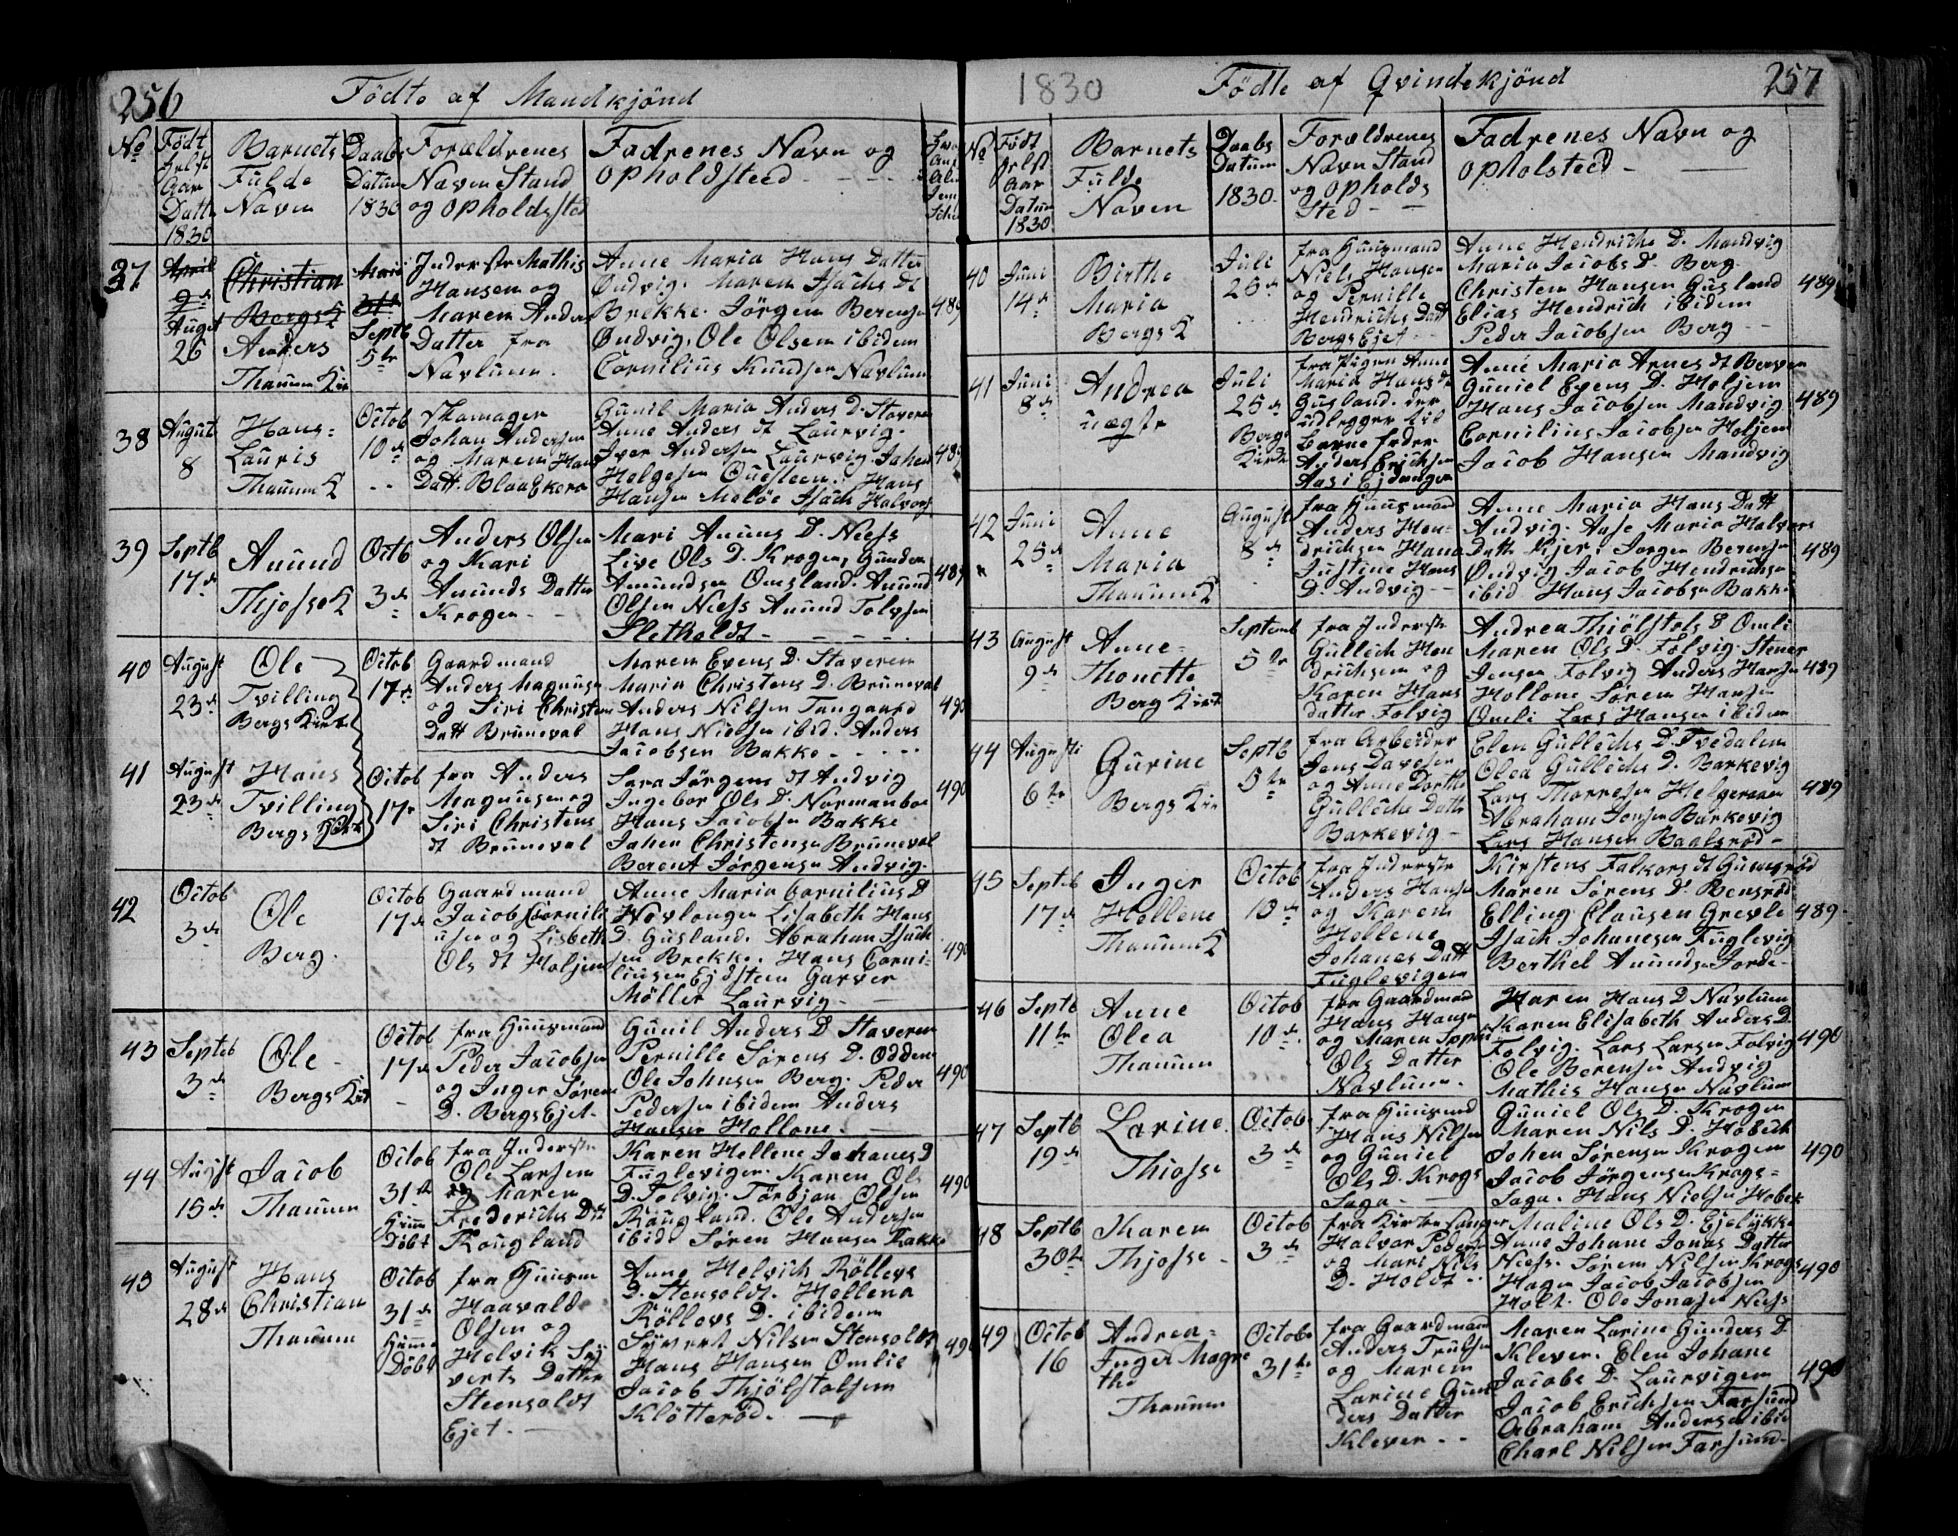 256
Födte af Mandkjönd
No
Födt
Aar
Datu
1830
Barnets
Fulde
Navn
Daabs
Datum
1830
Forældrenes
Navn Stand
og Opholdssted
Fadrenes Navn og
Opholdsteed
37
April
9de
August
26
Christian
Bergs K
Anders
Thanum Kir
Maii
31te
Septb
5te
Inderste Mathis
Hansen og
Maren Anders
Datter fra
Navlum.
Anne Maria Hans Datter
Øndvig. Maren Isachs Dt
Brekke. Jörgen Berensen
Øndvig. Ole Olsen ibidem
Cornilius Knudsen Navlum
489
38
August
8
Hans
Lauris
Thanum K
Octob
10de
Skomager
Johan Andersen
og Maren Hans
Datt. Blaaekera
Gunil Maria Anders D. Stavern
Anne Anders dt Laurvig.
Iver Andersen Laurvig. Johen
Helgesen Questeen. Hans
Hansen Melöe Isach Halvors
489
39
Septb
17de
Anund
Thjosse K
Octb
3de
Anders Olsen
og Kari
Anunds Datter
Krogen
Mari Anuns D. Næss
Live Ols D. Krogen, Gunder
Amundsen Omsland. Anund
Olsen Næss Anund Tolvsen
Sletholdt
489
40
August
23de
Ole
Tvilling
Bergs Kirke
Octob
17de
Gaardmand
Anders Magnusen
og Siri Christens
Datt Bruneval
Maren Evens D. Staveren
Maria Christens D. Bruneval
Anders Nilsen Tangaard
Hans Nielsen ibid. Anders
Jacobsen Bakke
490
41
August
23de
Hans
Tvilling
Bergs Kirke
Octob
17de
fra Anders
Magnusen og
Siri Christens
dt Bruneval
Sara Jörgens dt Andvig
Ingebor Ols D. Normanboe
Hans Jacobsen Bakke
Johen Christensen Bruneval
Berent Jörgensen Andvig.
490
42
Octob
3de
Ole
Berg.
Octob
17de
Gaardmand
Jacob Cornili
usen og Lisbeth
Ols dt Holjem
Anne Maria Cornilius D
Havlangen Lisabeth Hans
D. Gusland. Abrahan Isach
sen Brekke. Hans Corni-
liusen Ejdsten Garver
Möller Laurvig
490
43
Septeb
3de
Ole
Bergs Kirk
Octob
17de
fra Huusmand
Peder Jacobsen
og Inger Sörens
D. BergsEjet.
Gunil Anders D Staveren
Pernille Sörens D. Odden
Ole Johnsen Berg. Peder
Pedersen ibidem Anders
Hansen Hollone.
490
44
August
15de
Jacob
Thanum
Octob
31te
Hiem
Döbt
fra Inderste
Ole Larsen
og Maren
Frederichs Dtt
Rougland
Karen Hellene Johanes D
Fuglevigen. Karen Ols
D. Folvig. Torbjon Olsen
Raugland. Ole Andersen
ibid. Sören Hansen Bakke
490
45
August
28de
Hans
Christian
Thanum
Octob
31te
Hiem
Döbt
fra Huusm
Haavald
Olsen og
Helvik Sy
verts Datter
Steensoldt
Ejet.
Anne Helvich Röllevs
D. Stensoldt. Hellena
Röllevs D. ibidem
Syvert Nilsen Stensoldt
Hans Hansen Omlie
Jacob Thjölstolsen
Klötteröd.
490
1830
Födte af Qvindekjönd
257
No
Födt
Aar
Datum
1830
Barnets
Fulde
Navn
Daabs
Datum
1830
Forældrenes
Navn Stand
og Opholds
Sted
Fadrenes Navn og
Opholsteed
40
Juni
14de
Birthe
Maria
Bergs K
Juli
25de
fra Huusmand
Niels Hansen
og Pernille
Hendrichs Datt
BergsEjet
Anne Hendrichs D. Mandvig
Maria Jacobs D. Berg.
Christen Hansen Gusland
Elias Hendrich ibidem
Peder Jacobsen Berg
489
41
Juni
8de
Andrea
uægte
Juli
25de
Bergs
Kirke
fra Pigen Anne
Maria Hans D.
Gusland. der
udlegger til
Barne fader
Anders Erichsen
Aas i Ejdanger
Anne Maria Arnes dt Berven
Guniel Evens D. Holjem
Hans Jacobsen Mandvig
Cornilius Jacobsen Holjem
Jacob Hansen Mandvig
489
42
Juni
25de
Anne
Maria
Thanum K
August
8de
fra Huusmand
Anders Hen-
drichsen Hana
Justine Hans
D. Andvig
Anne Maria Hans Datt
Andvig. Aase Maria Halvors
Datt. Kjer. Jorgen Berensen
Øndvig Jacob Hendrichsen
ibid Hans Jacobsen Bakke
489
43
August
9de
Anne
Thonette
Berg Kirke
Septemb
5te
fra Inderste
Gullich Hen
drichsen og
Karen Hans
datter Folvig
Andrea Thjölstols D Omli
Maren Ols D. Folvig. Stener
Jensen Folvig Anders Hansen
Hollone Sören Hansen
Omli Lars Hansen ibidem
489
44
Augusti
6te
Gurine
Bergs Kir
Septb
5te
fra Arbeider
Jens Davesen
og Anne Dorthe
Gullichs Datt
Barkevig
Elen Gullichs D. Tvedalen
Olea Gullichs D. Barkevig
Lars Thorresen Helgeraaen
Abraham Jensen Barkevig
Lars Hansen Baatsröd
489
45
Septeb
17de
Inger
Hellene
Thanum K
Octob
10de
fra Inderste
Anders Hansen
og Karen
Hellene
Johanes Datt
Fuglevigen
Kirstens Falkors dt Gumseröd
Maren Sörens D. Bensröd
Elling Clausen Grevle
Isach Johanesen Fuglevig
Berthel Anundsen Jorde
489
46
Septb
11te
Anne
Olea
Thanum
Octob
10de
fra Gaardmand
Hans Hansen
og Maren Sophi
Ols Datter
Navlum.
Maren Hans D Navlum
Karen Elisabeth Anders D.
Folvig. Lars Larsen Folvig
Ole Berensen Andvig
Mathis Hansen Navlum
490
47
Septb
19de
Larine
Thiosse
Octob
3de
fra Huusmd
Hans Nilsen
og Guniel
Ols D. Krogs
Saga
Guniel Ols D. Krogen
Maren Nils D. Hobech
Johen Sörensen Krogen
Jacob Jörgensen Krogs=
Saga. Hans Nielsen Hobek
490
48
Septb
30te
Maren
Thjosse
Octob
3de
fra Kirkesanger
Halvor Peders
og Mari Nils
D. Holdt
Maline Ols D. Ejelykke
Anne Johane Jonas Datter
Næss. Sören Nilsen Krogs
Hagen Jacob Jacobsen
Holt. Ole Jonasen Næss
490
49
Octob
16
Andrea
Inger Magre
the
Thanum
Octob
31te
fra Gaardmand
Anders Trulsen
og Maren
Larine Gun
ders Datter
Klever
Maren Larine Gunders D
Klever. Elen Johane
Jacobs D. Laurvigen
Jacob Erichsen Farsund
Abraham Andersen ibid
Charl Nilsen Farsund
490